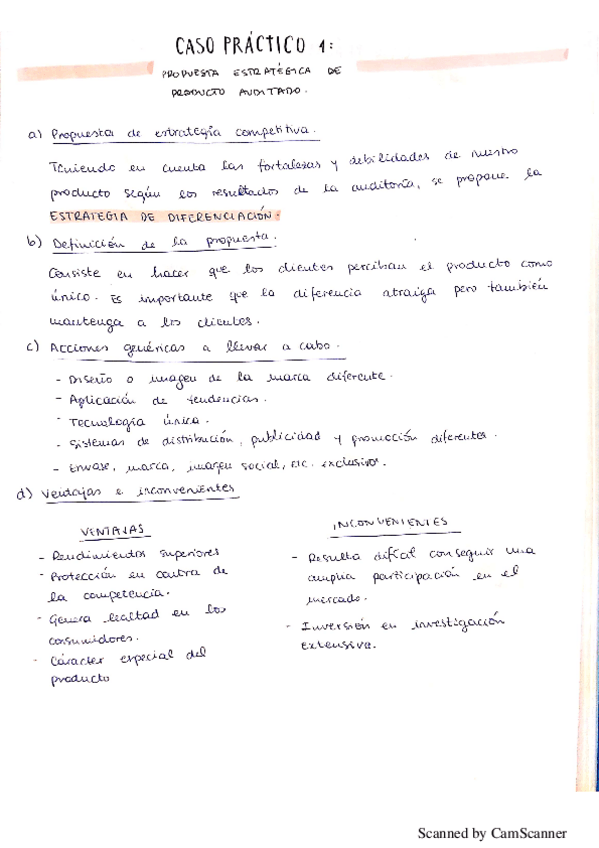 CASO PRÁCTICO 1:
PROPUESTA ESTRATÉGICA DE
PRODUCTO AUDITADO.
a) Propuesta de estrategia competitiva.
Teniendo en cuenta las fortalezas y debilidades de nuestro
producto según los resultados de la auditoría, se propone la
ESTRATEGIA DE DIFERENCIACIÓN.
b) Definición de la propuesta.
Consiste en hacer que los clientes perciban el producto como
único. Es importante que la diferencia atraiga pero también
mantenga a los clientes.
c) Acciones genéricas a llevar a cabo.
- Diseño o imagen de la marca diferente.
- Aplicación de tendencias.
- Tecnología única.
- Sistemas de distribución, publicidad y promoción diferentes.
- Envase, marca, imagen social, etc. exclusivos.
d) Ventajas e inconvenientes
VENTAJAS
- Rendimientos superiores
- Protección en contra de
la competencia.
- Genera lealtad en los
consumidores.
- Cáracter especial del
producto
INCONVENIENTES
- Resulta difícil conseguir una
amplia participación en el
mercado.
- Inversión en investigación
extensiva.
Scanned by CamScanner